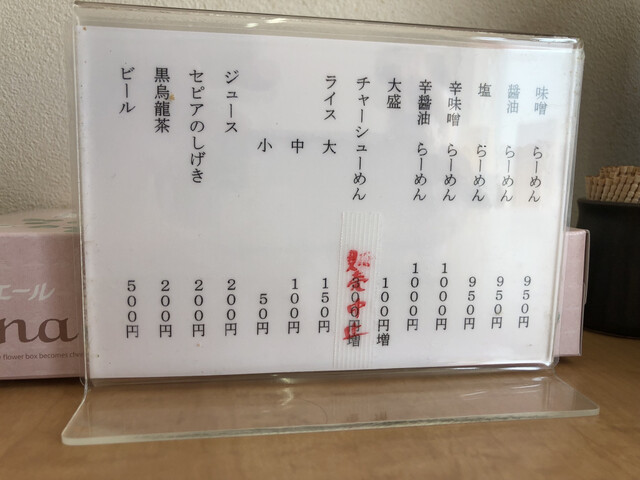 味噌 らーめん 950円
醤油 らーめん 950円
塩 らーめん 950円
辛味噌 らーめん 1000円
辛醤油 らーめん 1000円
大盛 100円増
チャーシューめん 00円増
ライス 大 150円
中 100円
小 50円
ジュース 200円
セピアのしげき 200円
黒烏龍茶 200円
ビール 500円
エール
na
flower box becomes